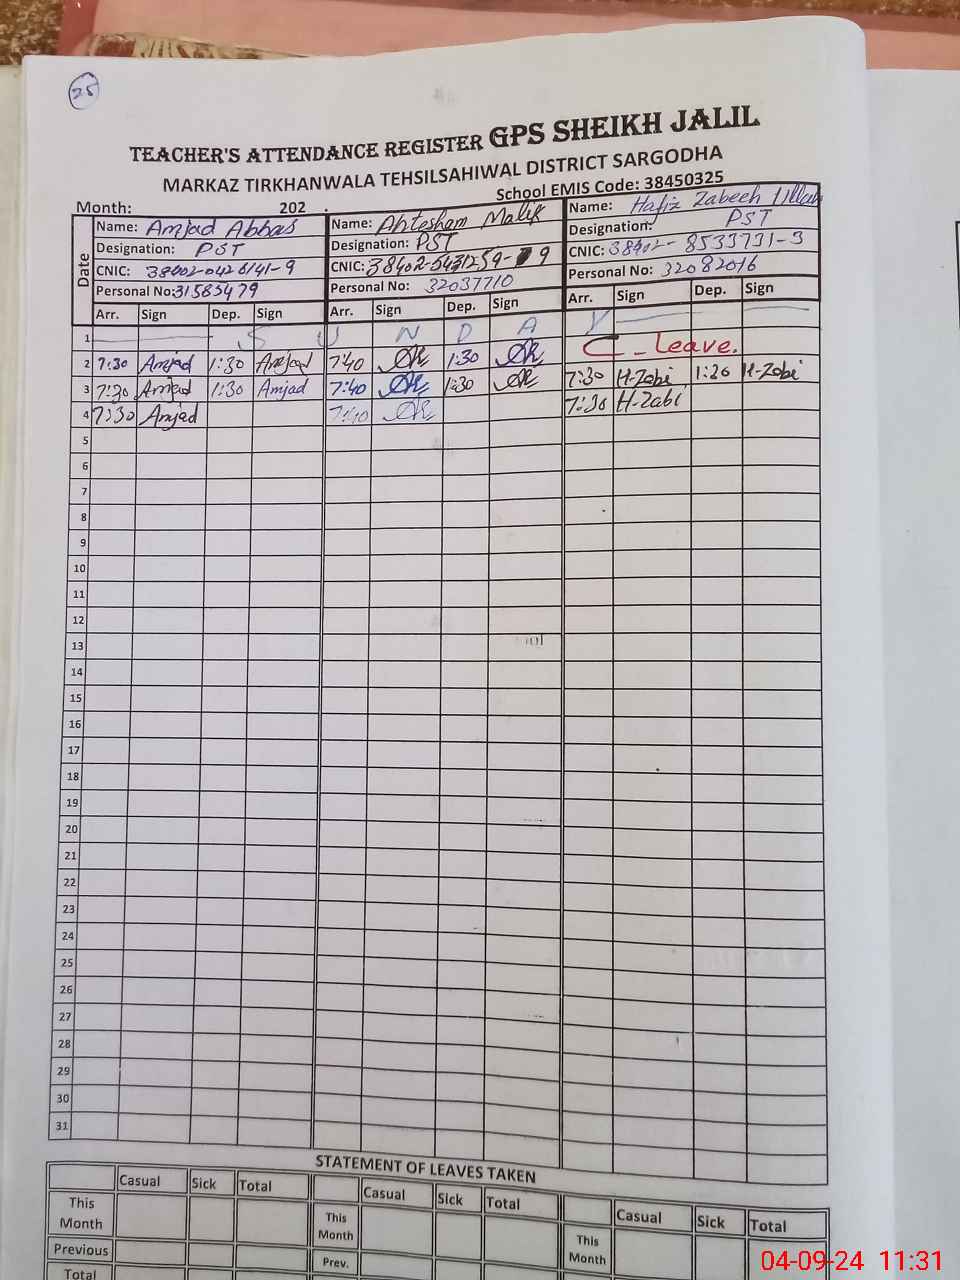 25
TEACHER'S ATTENDANCE REGISTER GPS SHEIKH JALIL
MARKAZ TIRKHANWALA TEHSILSAHIWAL DISTRICT SARGODHA
School EMIS Code: 38450325
Month: 202 .
Date
Name: Amjad Abbas Name: Ahtesham Malik Name: Hafiz Zabeeh Ullah
Designation: PST Designation: PST Designation: PST
CNIC: 38402-0426141-9 CNIC: 38402-5431259-9 CNIC: 38402-8533731-3
Personal No: 31585479 Personal No: 32037710 Personal No: 32082016
Arr. Sign Dep. Sign Arr. Sign Dep. Sign Arr. Sign Dep. Sign
1 S U N D A Y
2 7:30 Amjad 1:30 Amjad 7:40 1:30 C-Leave.
3 7:30 Amjad 1:30 Amjad 7:40 1:30 7:30 H-Zabi 1:30 H-Zabi
4 7:30 Amjad 7:40 7:30 H-Zabi
5
6
7
8
9
10
11
12
13
14
15
16
17
18
19
20
21
22
23
24
25
26
27
28
29
30
31
STATEMENT OF LEAVES TAKEN
Casual Sick Total Casual Sick Total Casual Sick Total
This Month This Month This Month
Previous Prev.
Total
04-09-24 11:31